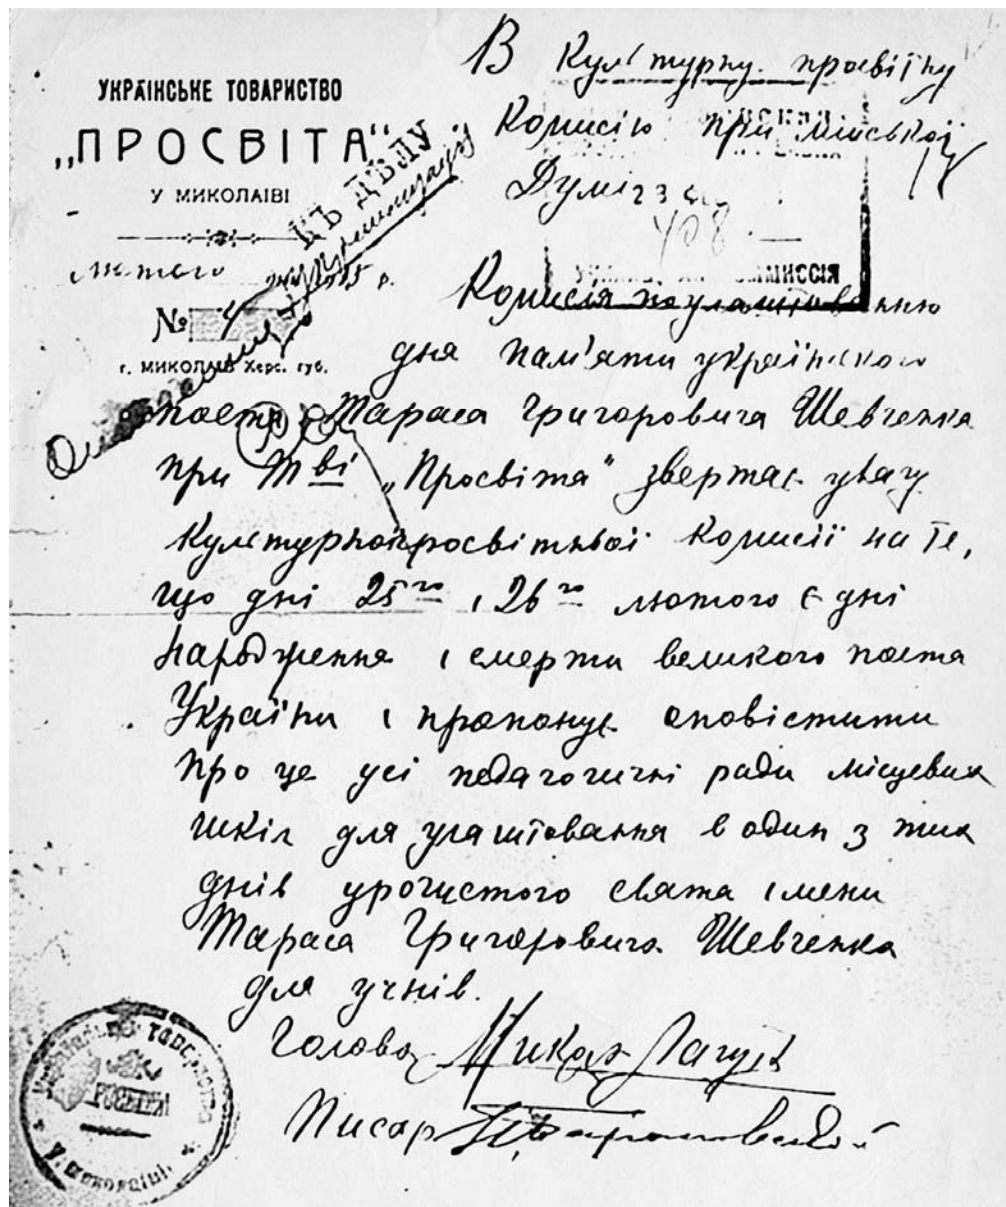 УКРАІНСЬКЕ ТОВАРИСТВО
„ПРОСВІТА“
У МИКОЛАІВІ
лютого р.
№
г. МИКОЛАЇВ Херс. губ.
КЪ ДѢЛУ
В Культурну просвітну
Комисію при міській
Думі
408
КОММИССІЯ
Комисія по улаштованню
дня пам'яти українского
поета Тараса Григоровича Шевченка
при Т-ві „Просвіта“ звертає увагу
Культурної просвітньої Комисії на те,
що дні 25го і 26го лютого є дні
народження і смерти великого поета
України і пропонує оповістити
про це усі педагогичні ради місцевих
шкіл для улаштовання в один з тих
днів урочистого свята імени
Тараса Григоровича Шевченка
для учнів.
Голова
Писар
ПРОСВІТА
у Миколаіві